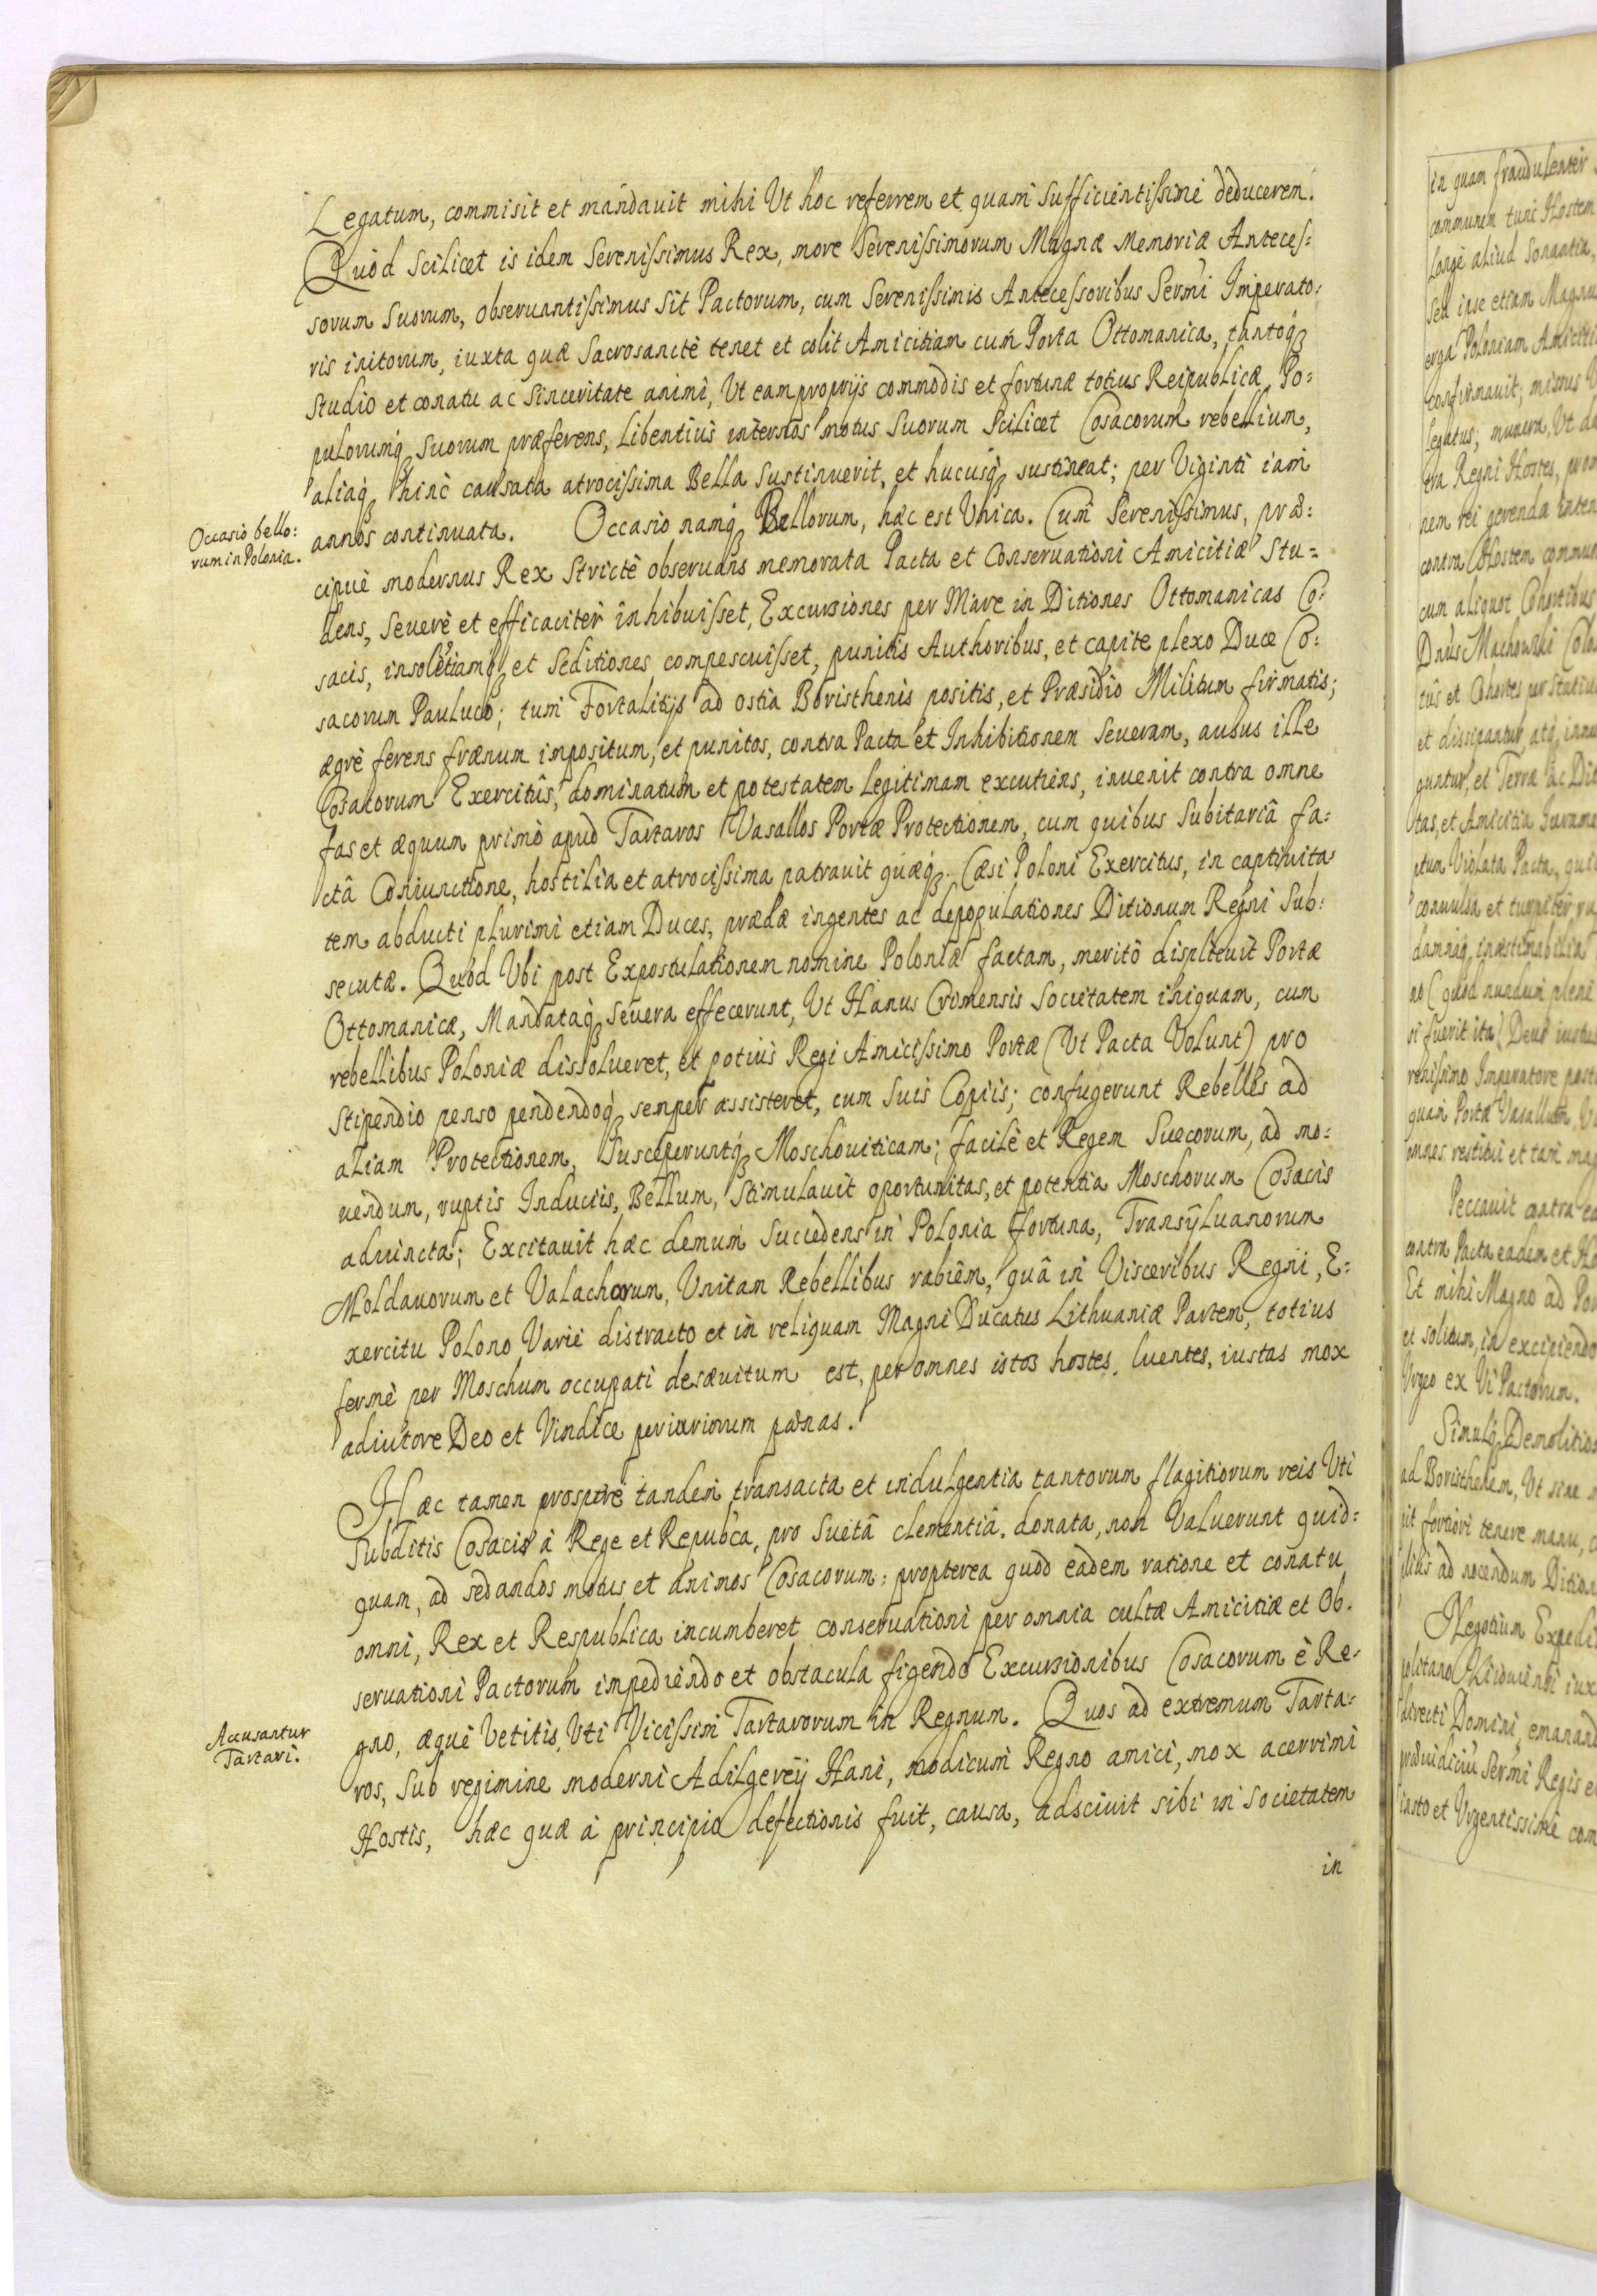 Legatum, commisit et mandauit mihi Vt hoc referrem et quam sufficientissime deducerem.
Quod Scilicet is idem Serenissimus Rex, more Serenissimorum Magnæ Memoriæ Anteces=
sorum Suorum, obseruantissimus Sit Pactorum, cum Serenissimis Antecessoribus Sermi Imperato=
ris initorum, iuxta quæ Sacrosanctè tenet et colit Amicitiam cum Porta Ottomanica, tantoq
Studio et conatu ac Sinceritate animi, Vt eam proprijs commodis et fortunæ totius Reipublicæ, Po=
pulorumq Suorum præferens, Libentius internos motus Suorum Scilicet Cosacorum rebellium,
aliaq hinc causata atrocissima Bella Sustinuerit, et hucusq sustineat; per Viginti iam
Occasio bello:
rum in Polonia.
annos continuata. Occasio namq Bellorum, hæc est Vnica. Cum Serenissimus, præ=
cipuè modernus Rex Strictè obseruans memorata Pacta et Conseruationi Amicitiæ Stu=
dens, Seuerè et efficaciter inhibuisset, Excursiones per Mare in Ditiones Ottomanicas Co=
sacis, insoletiamq et Seditiones compescuisset, punitis Authoribus, et capite plexo Duce Co=
sacorum Pauluco; tum Fortalitijs ad ostia Boristhenis positis, et Præsidio Militum firmatis;
ægrè ferens frænum impositum, et punitos, contra Pacta et Inhibitionem Seueram, ausus ille
Cosacorum Exercitûs, dominatum et potestatem Legitimam excutiens, inuenit contra omne
fas et æquum primò apud Tartaros Vasallos Portæ Protectionem, cum quibus Subitariâ fa=
ctâ Coniunctione, hostilia et atrocissima patrauit quæq. Cæsi Poloni Exercitus, in captiuita
tem abducti plurimi etiam Duces, prædæ ingentes ac depopulationes Ditionum Regni Sub=
secutæ. Quod Vbi post Expostulationem nomine Poloniæ factam, meritò displicuit Portæ
Ottomanicæ, Mandataq Seuera effecerunt, Vt Hanus Crimensis Societatem iniquam, cum
rebellibus Poloniæ dissolueret, et potius Regi Amicissimo Portæ (Vt Pacta Volunt) pro
Stipendio penso pendendoq semper assisteret, cum Suis Copiis; confugerunt Rebelles ad
aliam Protectionem, Susceperuntq Moschouiticam; facilè et Regem Suecorum, ad mo=
uendum, ruptis Induciis, Bellum, Stimulauit oportunitas, et potentia Moschorum Cosacis
adiuncta; Excitauit hæc demum Succedens in Polonia fortuna, Transÿluanorum
Moldauorum et Valachorum, Vnitam Rebellibus rabiem, quâ in Visceribus Regni, E=
xercitu Polono Variè distracto et in reliquam Magni Ducatus Lithuaniæ Partem, totius
fermè per Moschum occupati desæuitum est, per omnes istos hostes, luentes, iustas mox
adiutore Deo et Vindice periuriorum pœnas.
Hæc tamen prosperè tandem transacta et indulgentia tantorum flagitiorum reis Vti
Subditis Cosacis à Rege et Repubca, pro Suetâ clementiâ, donata, non Valuerunt quid=
quam, ad sedandos motus et animos Cosacorum: propterea quod eadem ratione et conatu
omni, Rex et Respublica incumberet conseruationi per omnia cultæ Amicitiæ et Ob=
seruationi Pactorum impediendo et obstacula figendo Excursionibus Cosacorum è Re=
Accusantur
Tartari.
gno, æquè Vetitis, Vti Vicissim Tartarorum in Regnum. Quos ad extremum Tarta=
ros, Sub regimine moderni Adilgereÿ Hani, modicum Regno amici, mox acerrimi
Hostis, hæc quæ à principio defectionis fuit, causa, adsciuit sibi in Societatem
in
in quam fraudulenter
communem tunc Hostem
Longè aliud Sonantia,
Sed ipse etiam
erga Poloniam
confirmauit;
legatus; munera, Vt
tra Regni Hostes,
nem rei gerenda
contra Hostem
cum aliquot Cohortibus
Dnus Machowski
et Cohortes per
et dissipantur, atq
guntur, et Terræ ac
et Amicitia
Violata Pacta,
conuulsa et turpiter
damnaq inæstimabilia
no (quod nundum pleni
si fuerit ita) Deus
renissimo Imperatore
quam Portæ Vasallum
omnes restitui et tam
Peccauit contra
contra Pacta eadem et
Et mihi Magno ad
et solitum, in excipiendo
Vrgeo ex Vi Pactorum.
Simulq Demolitio
ad Boristhenem, Vt sine
fortiori tenere manu,
ad nocendum
Negotium
directi Domini,
Sermi Regis
et Vrgentissimè